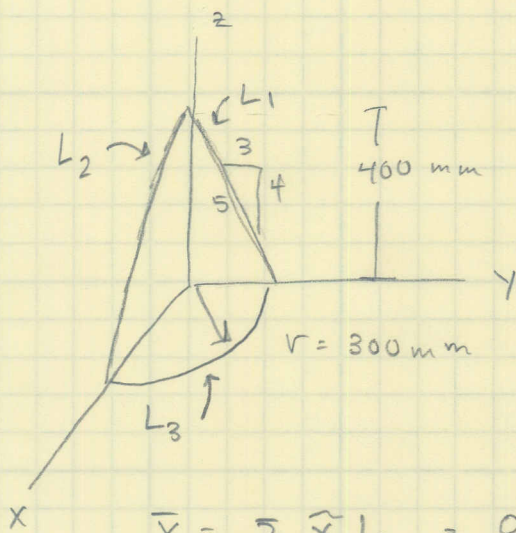 z
L1
L2
3
4
5
400 mm
Y
r = 300 mm
L3
X